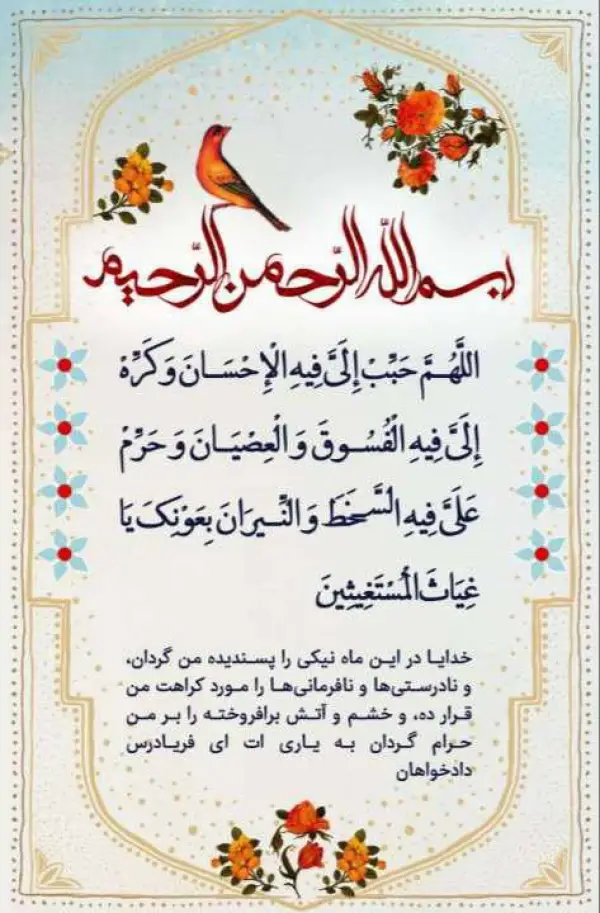 بسم الله الرحمن الرحیم
اللَّهُمَّ حَبِّبْ إِلَيَّ فِيهِ الْإِحْسَانَ وَ كَرِّهْ
إِلَيَّ فِيهِ الْفُسُوقَ وَ الْعِصْيَانَ وَ حَرِّمْ
عَلَيَّ فِيهِ السَّخَطَ وَ النِّيرَانَ بِعَوْنِكَ يَا
غِيَاثَ الْمُسْتَغِيثِينَ
خدایا در این ماه نیکی را پسندیده من گردان،
و نادرستی‌ها و نافرمانی‌ها را مورد کراهت من
قرار ده، و خشم و آتش برافروخته را بر من
حرام گردان به یاری ات ای فریادرس
دادخواهان